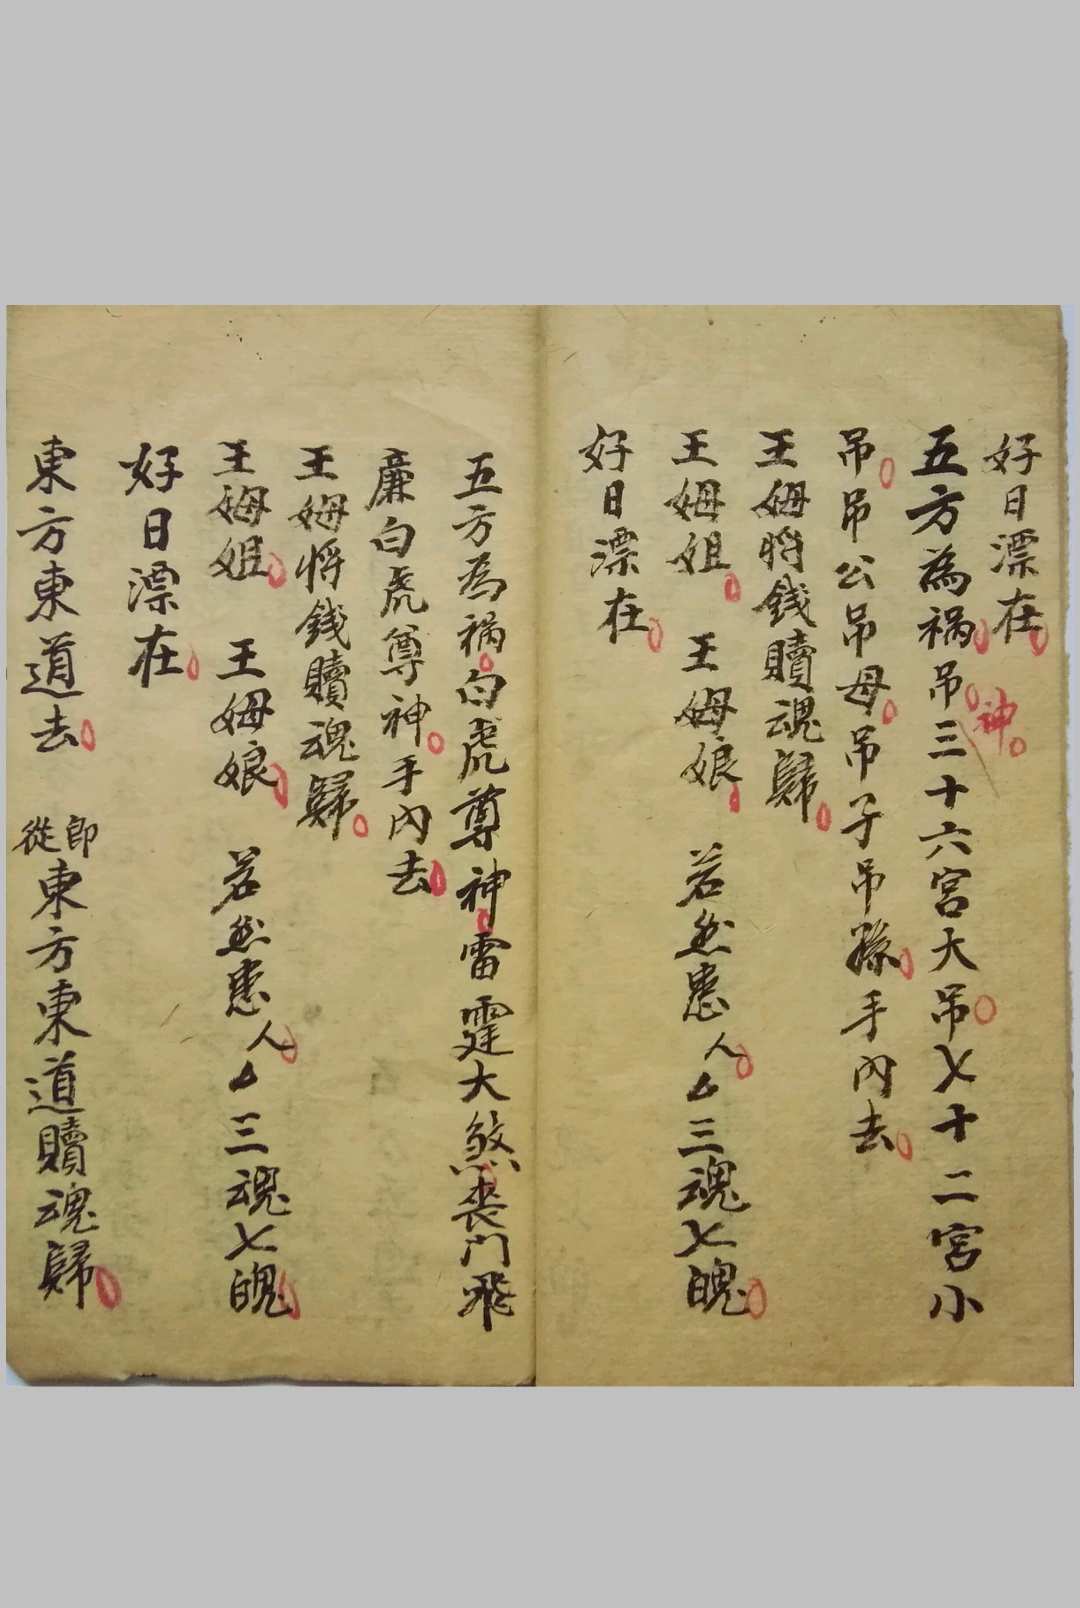 好日漂在
五方為祸吊神三十六宮大吊七十二宮小
吊吊公吊母吊子吊孫手內去
王姆將錢贖魂歸
王姆姐 王姆娘 若然患人厶三魂七魄
好日漂在
五方為祸白虎尊神雷霆大煞喪門飛
廉白虎尊神手內去
王姆將錢贖魂歸
王姆姐 王姆娘 若然患人厶三魂七魄
好日漂在
東方東道去 即從東方東道贖魂歸